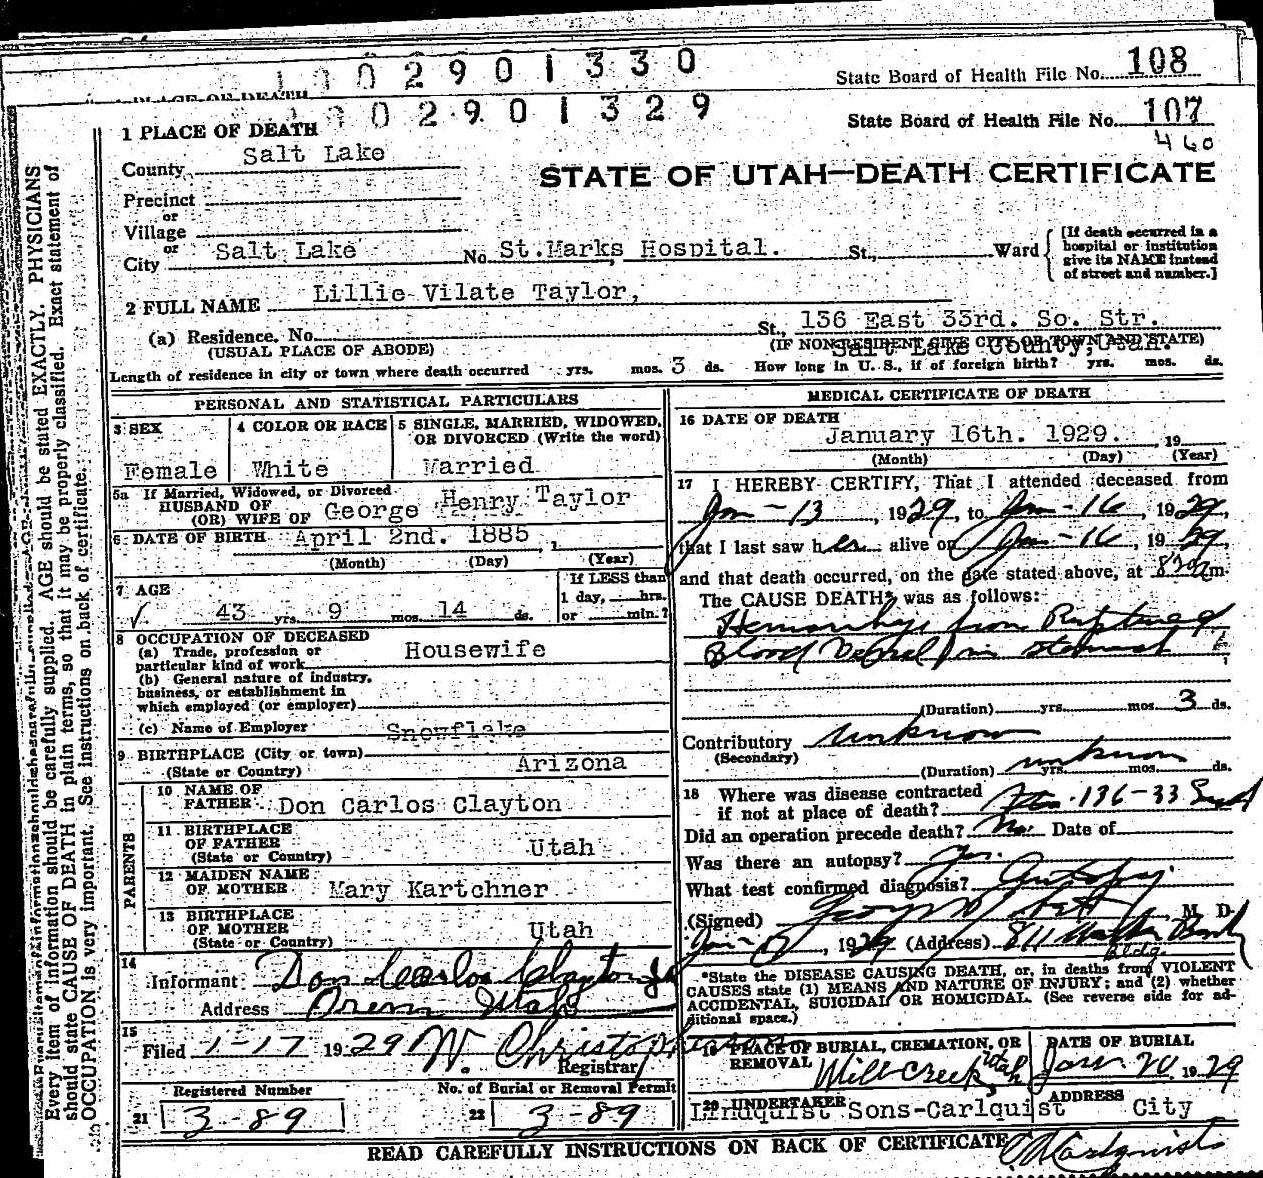 1 0 0 2 9 0 1 3 3 0
State Board of Health File No. 108
PLACE OF DEATH
0 2 9 0 1 3 2 9
State Board of Health File No. 107
460
1 PLACE OF DEATH
County Salt Lake
STATE OF UTAH—DEATH CERTIFICATE
Precinct
or
Village
or
City Salt Lake No. St. Marks Hospital. St., Ward
[If death occurred in a hospital or institution give its NAME instead of street and number.]
2 FULL NAME Lillie Vilate Taylor,
(a) Residence. No. St., 136 East 33rd. So. Str.
(USUAL PLACE OF ABODE) (IF NON-RESIDENT GIVE CITY OR TOWN AND STATE)
Salt Lake County, Utah.
Length of residence in city or town where death occurred yrs. mos. 3 ds. How long in U. S., if of foreign birth? yrs. mos. ds.
PERSONAL AND STATISTICAL PARTICULARS
3 SEX
Female
4 COLOR OR RACE
White
5 SINGLE, MARRIED, WIDOWED, OR DIVORCED (Write the word)
Married
5a If Married, Widowed, or Divorced
HUSBAND OF
(OR) WIFE OF George Henry Taylor
6 DATE OF BIRTH April 2nd. 1885
(Month) (Day) (Year)
7 AGE
43 yrs. 9 mos. 14 ds.
If LESS than
1 day, hrs.
or min.?
8 OCCUPATION OF DECEASED
(a) Trade, profession or
particular kind of work Housewife
(b) General nature of industry,
business, or establishment in
which employed (or employer)
(c) Name of Employer
Snowflake
9 BIRTHPLACE (City or town)
(State or Country) Arizona
PARENTS
10 NAME OF
FATHER Don Carlos Clayton
11 BIRTHPLACE
OF FATHER
(State or Country) Utah
12 MAIDEN NAME
OF MOTHER Mary Kartchner
13 BIRTHPLACE
OF MOTHER
(State or Country) Utah
14
Informant: Don Carlos Clayton Jr
Address Orem Utah
15
Filed 1-17 1929 W. Christopherson
Registrar
Registered Number
21 3-89
No. of Burial or Removal Permit
22 3-89
MEDICAL CERTIFICATE OF DEATH
16 DATE OF DEATH
January 16th. 1929. 19
(Month) (Day) (Year)
17 I HEREBY CERTIFY, That I attended deceased from
Jan-13, 1929, to Jan-16, 1929,
that I last saw her alive on Jan-16, 1929,
and that death occurred, on the date stated above, at m.
The CAUSE DEATH* was as follows:
Hemorrhage from Rupture of
Blood Vessel in stomach
(Duration) yrs. mos. 3 ds.
Contributory unknow
(Secondary)
(Duration) unknown yrs. mos. ds.
18 Where was disease contracted
if not at place of death? 136-33
Did an operation precede death? No. Date of
Was there an autopsy? Yes.
What test confirmed diagnosis? Autopsy
(Signed) M. D.
Jan-17, 1929 (Address) 811 Walker Bank
bldg.
*State the DISEASE CAUSING DEATH, or, in deaths from VIOLENT
CAUSES state (1) MEANS AND NATURE OF INJURY; and (2) whether
ACCIDENTAL, SUICIDAL OR HOMICIDAL. (See reverse side for ad-
ditional space.)
19 PLACE OF BURIAL, CREMATION, OR
REMOVAL Mill Creek, Utah
DATE OF BURIAL
Jan. 20, 1929
20 UNDERTAKER
Lindquist Sons-Carlquist
ADDRESS
City
READ CAREFULLY INSTRUCTIONS ON BACK OF CERTIFICATE
Carlquist
Every item of information should be carefully supplied. AGE should be stated EXACTLY. PHYSICIANS
should state CAUSE OF DEATH in plain terms, so that it may be properly classified. Exact statement of
OCCUPATION is very important. See instructions on back of certificate.